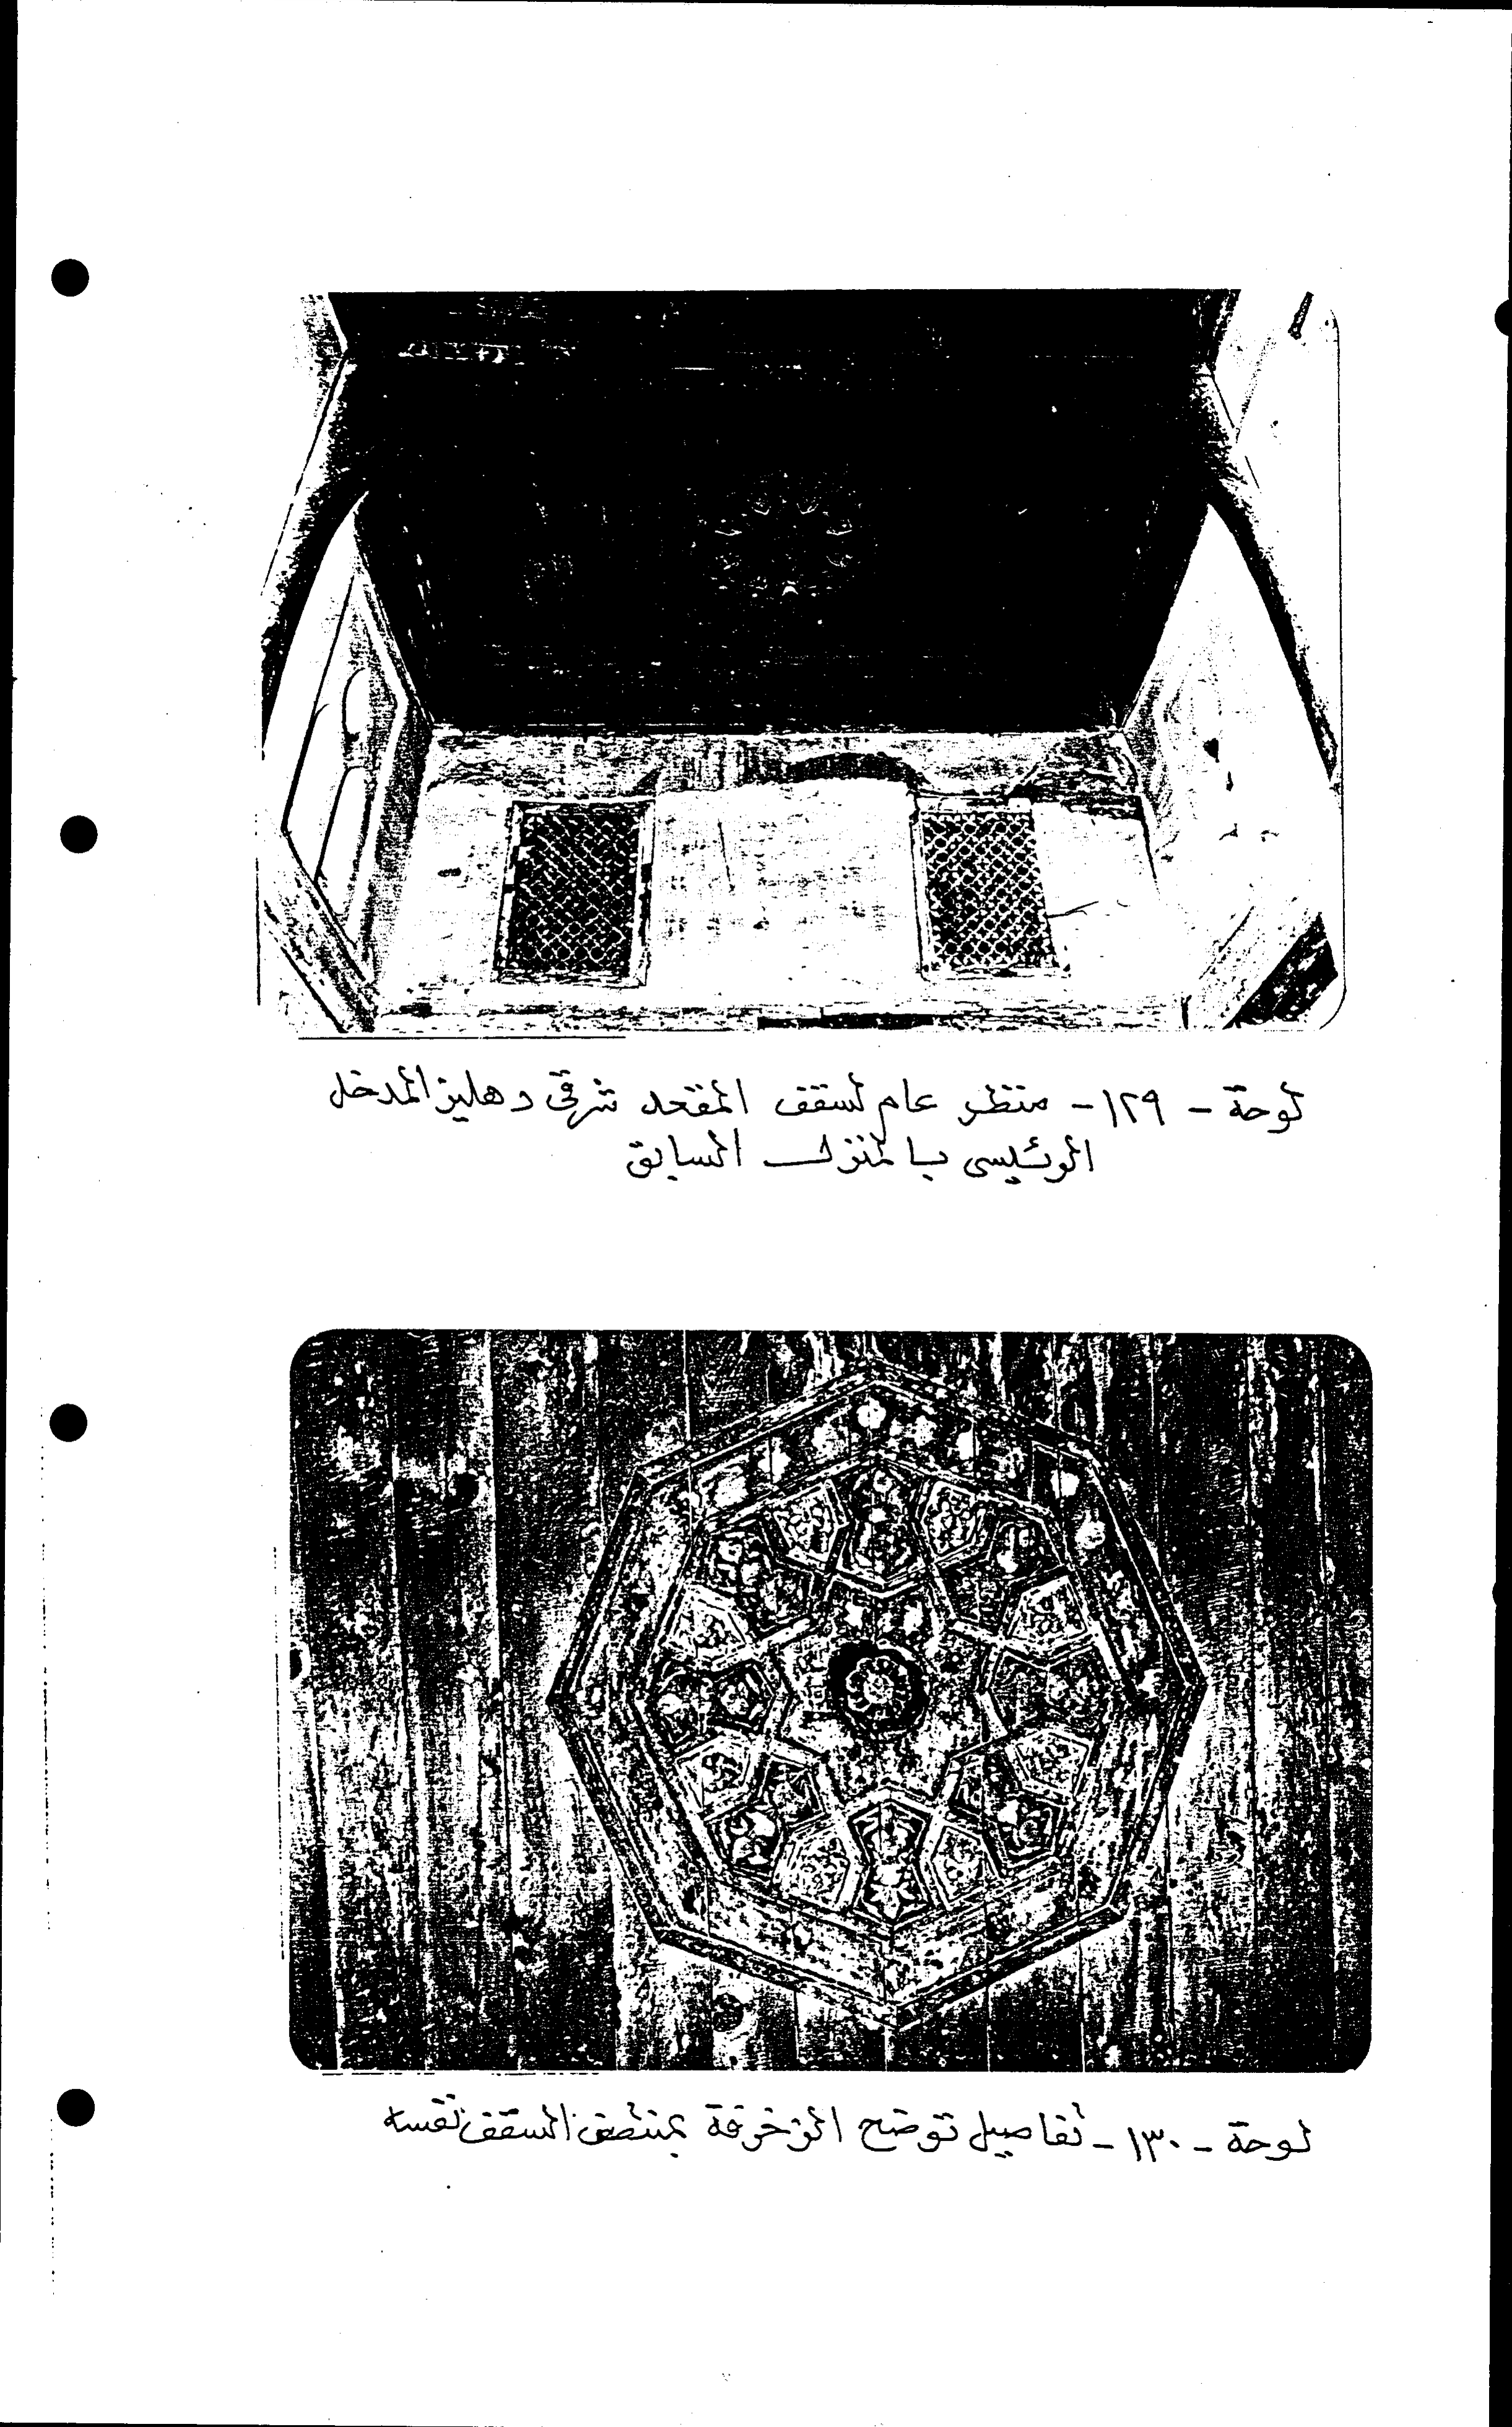 لوحة - ١٢٩ - منظر عام لسقف المقعد شرقى دهليز المدخل
الرئيسى بالمنزل السابق
لوحة - ١٣٠ - تفاصيل توضح الزخرفة بمنتصف السقف نفسه